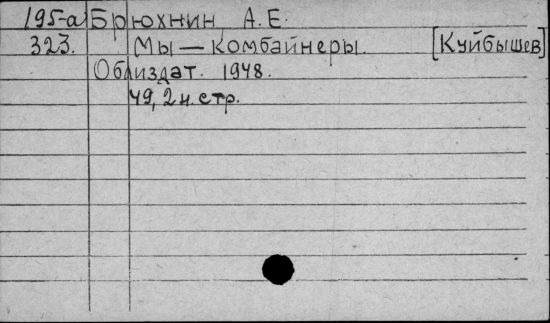 195-а Брюхнин, А. Е.
323. Мы — комбайнеры. [Куйбышев]
Облиздат. 1948.
49, 2 н. стр.